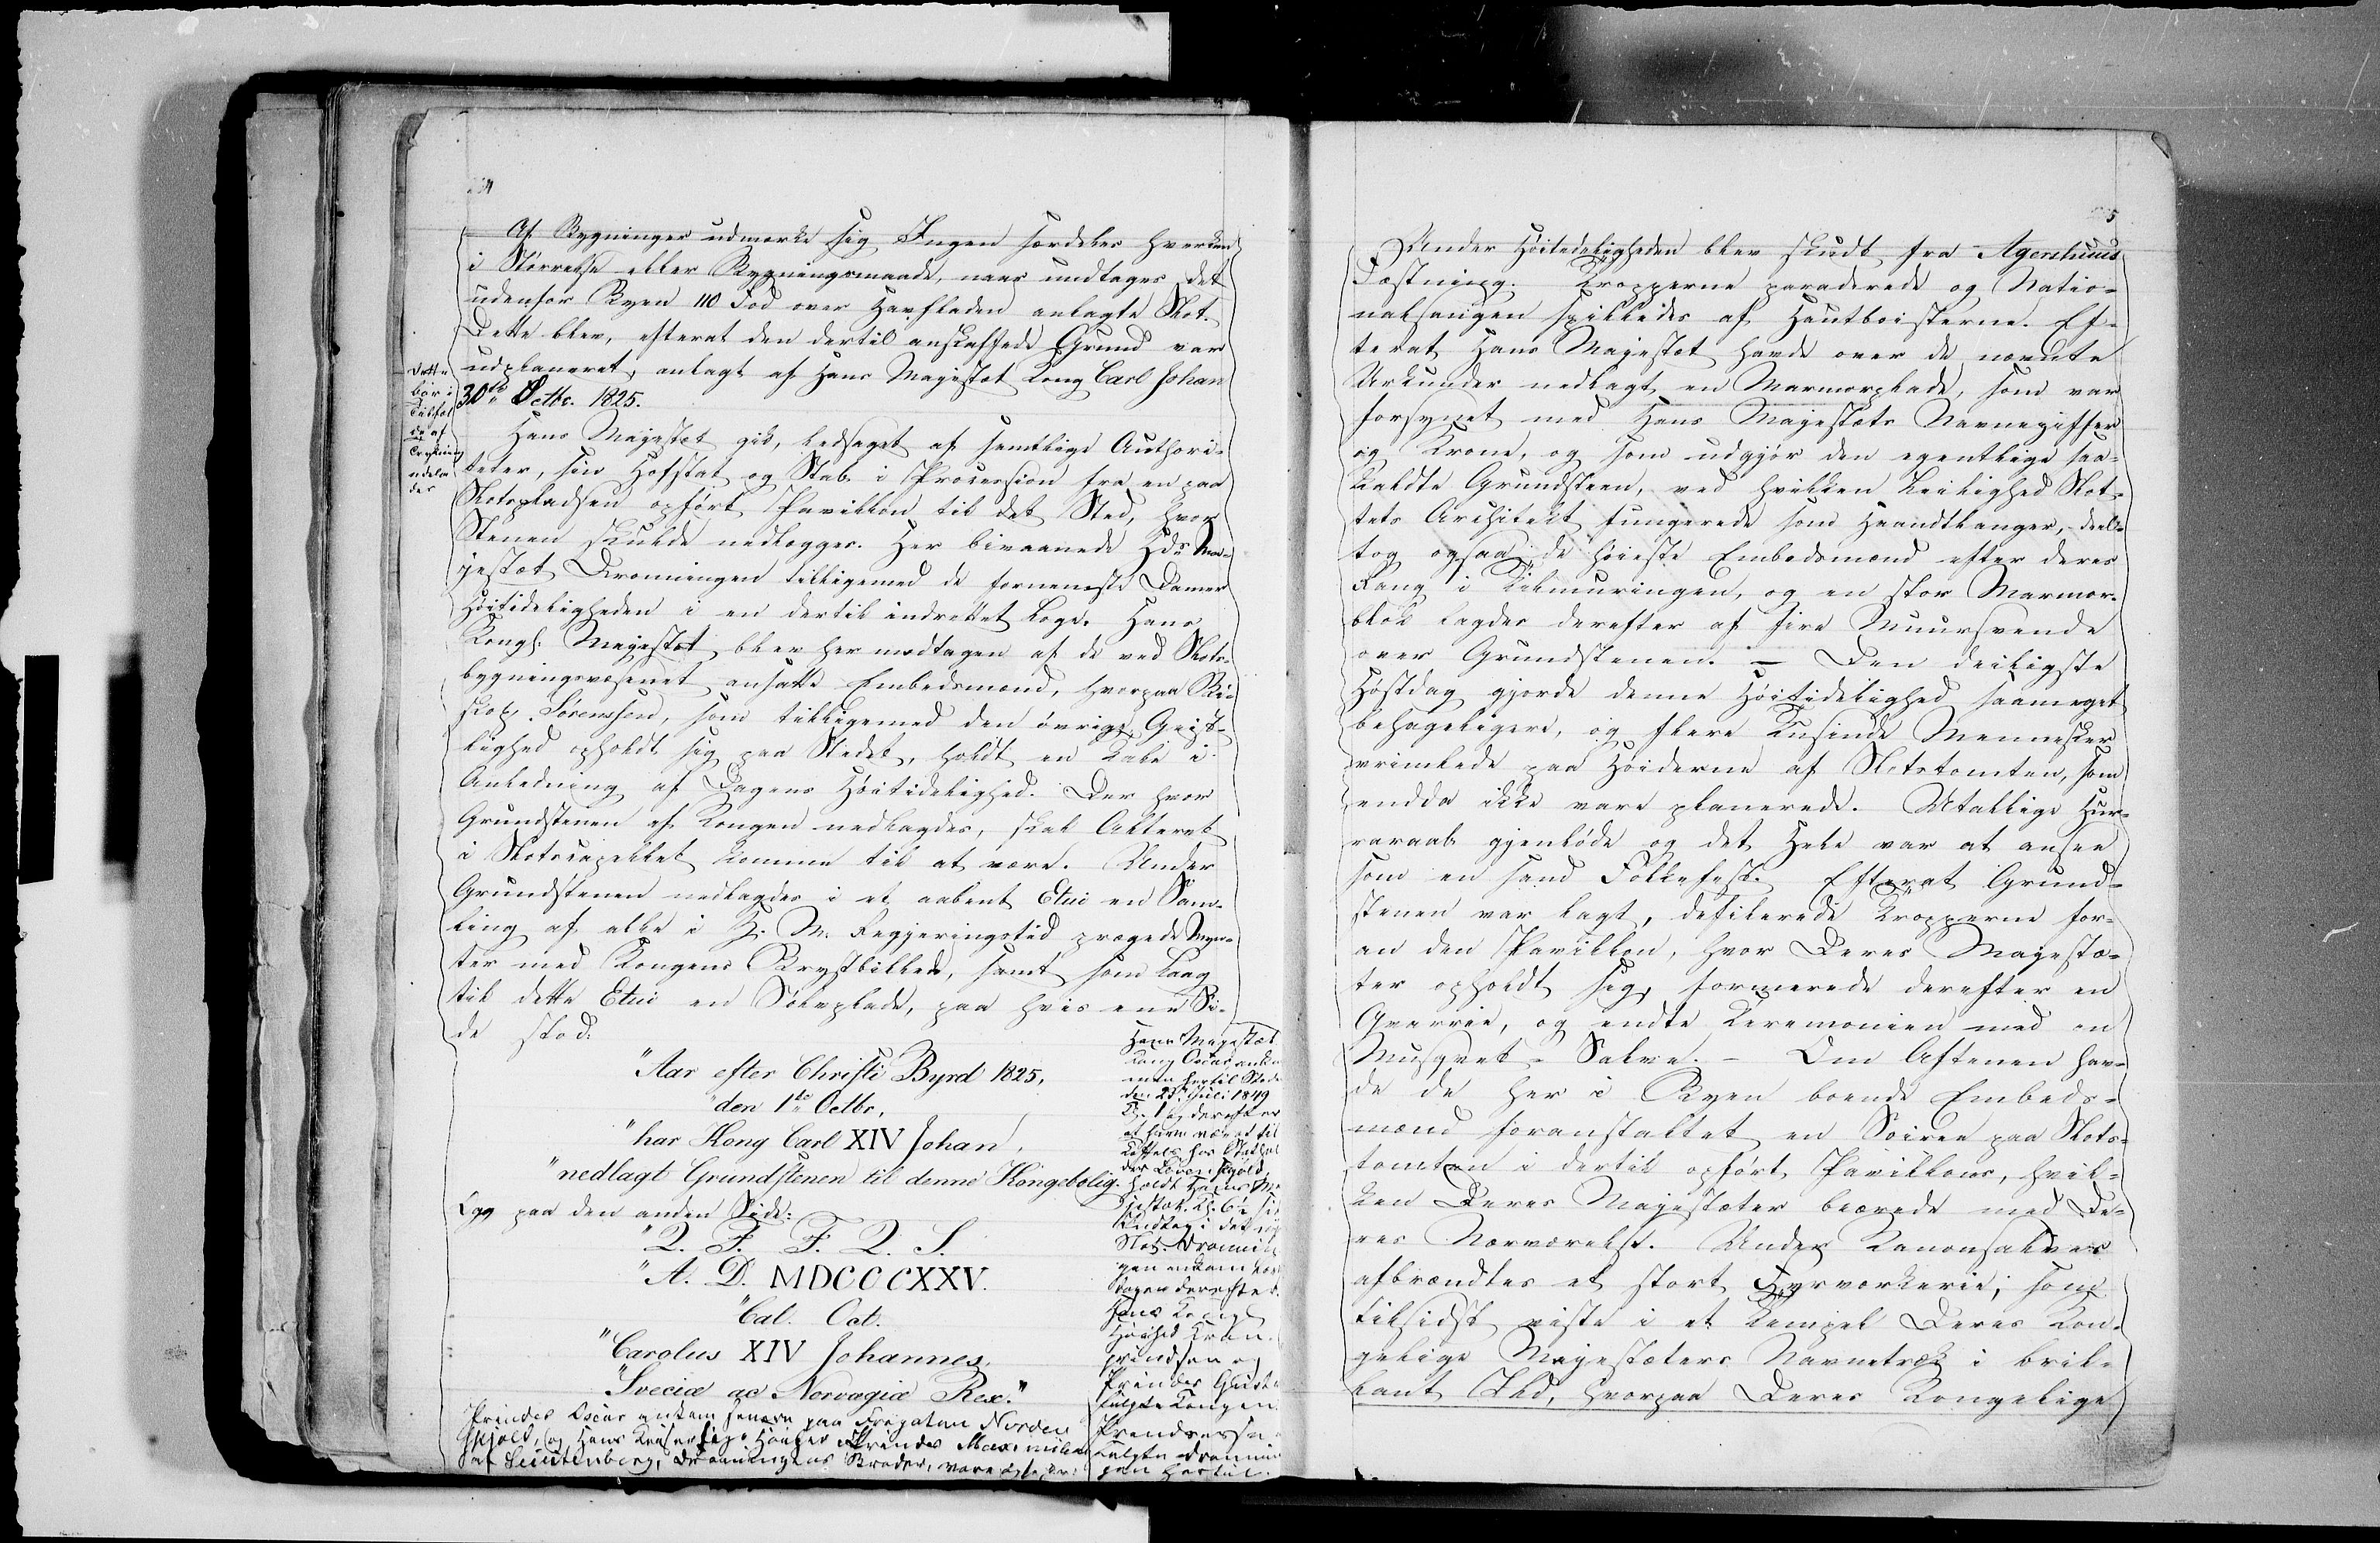 Af Bygninger udmærke sig Ingen særdeles hverken
i Størrelse eller Bygningsmaade, naar undtages det
udenfor Byen 110 Fod over Havfladen anlagte Slot.
Dette blev, efterat den dertil anskaffede Grund var
udplaneret, anlagt af Hans Majestæt Kong Carl Johan
30te Octbr. 1825.
Dette
bør i
Tilfæl
de af
Trykning
udela
des
Hans Majestæt gik, ledsaget af samtlige Authori-
teter, sin Hofstat og Stab i Procession fra en paa
Slotspladsen opført Pavillon til det Sted, hvor
Stenen skulde nedlægges. Her bivaanede Hds Ma-
jestæt Dronningen tilligemed de fornemste Damer
Høitideligheden i en dertil indrettet Loge. Hans
Kongl. Majestæt blev her modtagen af de ved Slots-
bygningsvæsenet ansatte Embedsmænd, hvorpaa Bi-
skop Sørenssen, som tilligemed den øvrige Geist-
lighed opholdt sig paa Stedet, holdt en Tale i
Anledning af Dagens Høitidelighed. Der hvor
Grundstenen af Kongen nedlagdes, skal Alteret
i Slotscapellet komme til at være. Under
Grundstenen nedlagdes i et aabent Etui en Sam-
ling af alle i H. M. Regjeringstid prægede Myn-
ter med Kongens Brystbillede, samt som Laag
til dette Etui en Sølvplade, paa hvis ene Si-
de stod:
"Aar efter Christi Byrd 1825,
"den 1te Octbr,
"har Kong Carl XIV Johan,
"nedlagt Grundstenen til denne Kongebolig.
Og paa den anden Side:
"Q. F. F. Q. S.
"A. D. MDCCCXXV.
"Cal. Oct.
"Carolus XIV Johannes,
"Sveciæ ac Norvegiæ Rex."
Hans Majestæt
Kong Oscar ankom
den 23de Juli 1849
Kl. 1 og derefter
at have været til
Taffels hos Stathol
der Løvenskjold,
holdt Hans Ma
jestæt Kl. 6½ sit
Indtog i det nye
Slot. Dronnin
gen ankom
Dagen derefter.
Hans Kongl
Høihed Kron-
prindsen og
Prinds Gustav
fulgte Kongen.
Prindsesse
fulgte Dronnin
gen hertil.
Prinds Oscar ankom senere paa Fregatten Norden
skjold, og Hans Keiserlige Høihed Prinds Maximilian
af Leuchtenberg, Dronningens Broder, vare
5
Under Høitideligheden blev skudt fra Agershuus
Fæstning. Tropperne paraderede og Natio-
nalsangen spilledes af Hautboisterne. Ef-
terat Hans Majestæt havde over de nævnte
Urkunder nedlagt en Marmorplade, som var
forsynet med Hans Majestæts Navneziffer
og Krone, og som udgjør den egentlige saa-
kaldte Grundsteen, ved hvilken Leilighed Slot-
tets Architekt fungerede som Haandlanger, deel-
tog ogsaa de høieste Embedsmænd efter deres
Rang i Tilmuringen, og en stor Marmor-
blok lagdes derefter af fire Muursvende
over Grundstenen. – Den deiligste
Høstdag gjorde denne Høitidelighed saameget
behageligere, og flere Tusinde Mennesker
vrimlede paa Høiderne af Slotstomten, som
endda ikke vare planerede. Utallige Hur-
raraab gjenløde og det Hele var at ansee
som en sand Folkefest. Efterat Grund-
stenen var lagt, defilerede Tropperne for-
an den Pavillon, hvor Deres Majestæ-
ter opholdt sig, formerede derefter en
Qvarrée, og endte Ceremonien med en
Musqvet-Salve. – Om Aftenen hav-
de de her i Byen boende Embeds-
mænd foranstaltet en Soiree paa Slots-
tomten i dertil opført Pavillons, hvil-
ken Deres Majestæter beærede med De-
res Nærværelse. Under Kanonsalver
afbrændtes et stort Fyrværkerie; som
tilsidst viste i et Tempel Deres Kon-
gelige Majestæters Navnetræk i bril-
lant Ild, hvorpaa Deres Kongelige